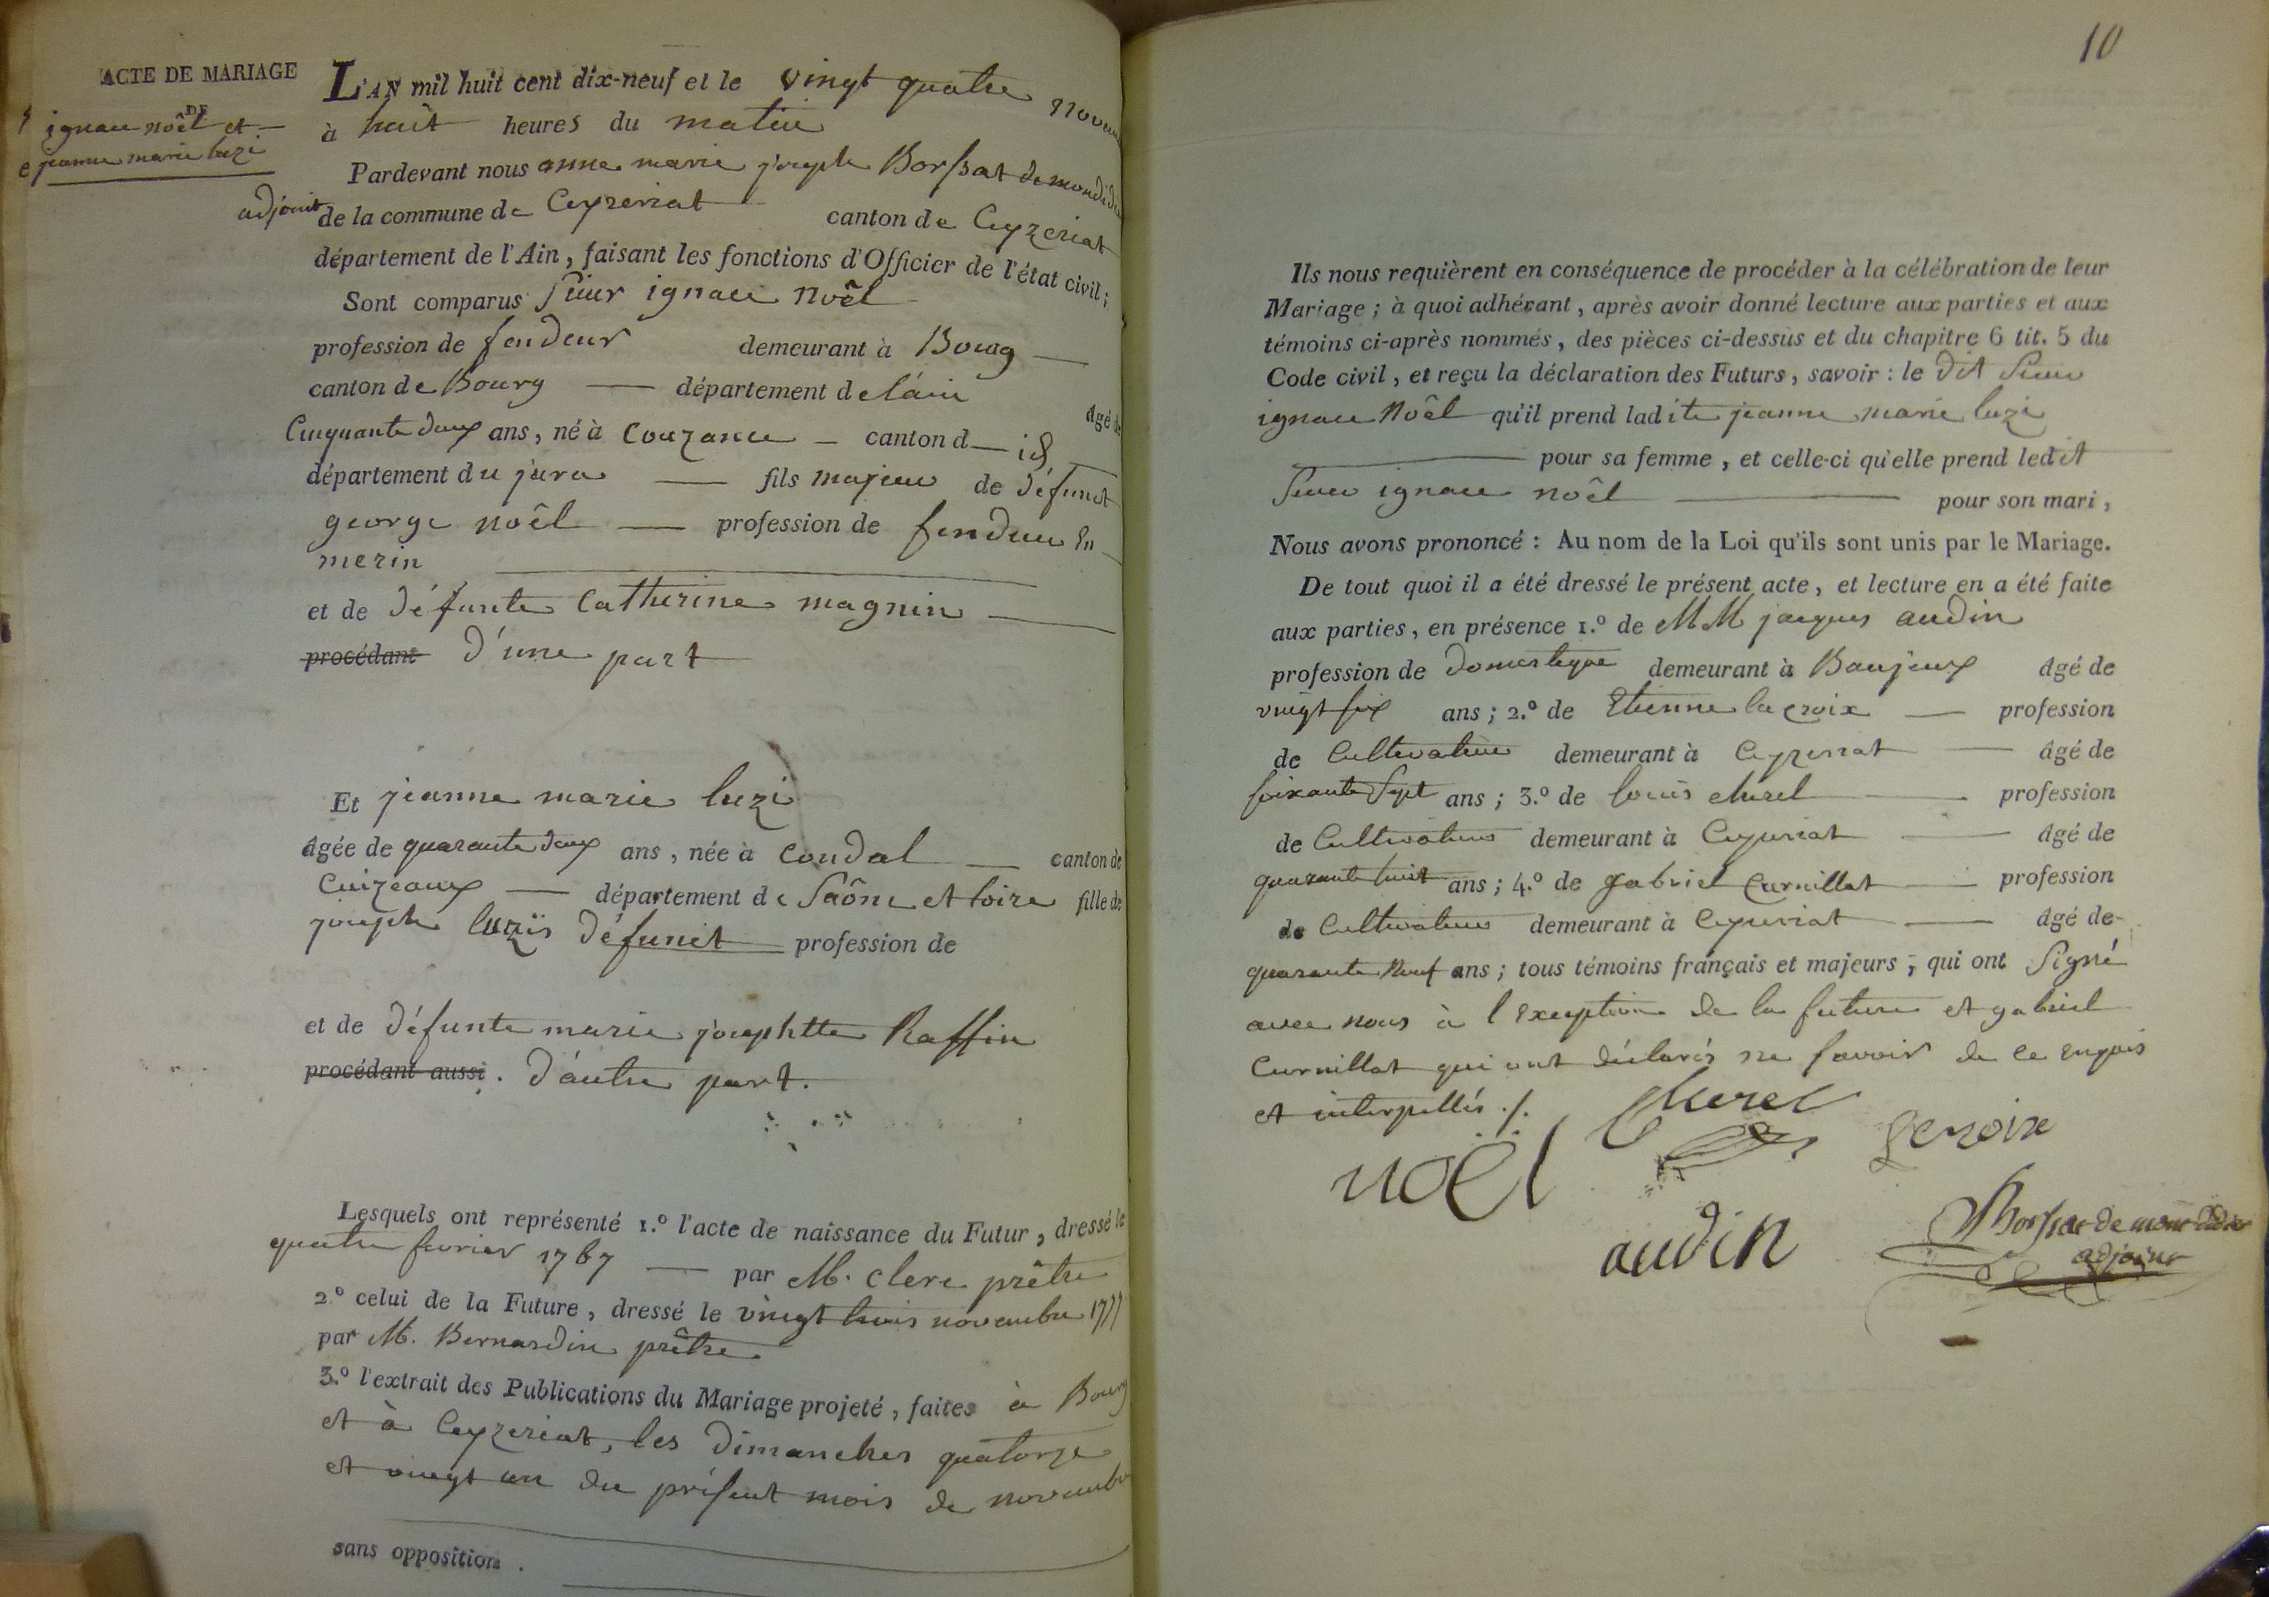 ACTE DE MARIAGE
DE
ignace noêl et
jeanne marie luzi
L'AN mil huit cent dix-neuf et le vingt quatre
à huit heures du matin
Pardevant nous anne marie joseph Borssat de
adjoint de la commune de Ceyzeriat canton de Ceyzeriat
département de l'Ain, faisant les fonctions d'Officier de l'état civil;
Sont comparus sieur ignace Noêl
profession de fondeur demeurant à Bourg
canton de Bourg département de l'ain
âgé de
Cinquante deux ans, né à Couzance canton d id
département du jura fils majeur de défunct
george noêl profession de fondeur En
merin
et de défunte Catherine magnin
procédant d'une part
Et jeanne marie luzi
âgée de quarante deux ans, née à Condal canton de
Cuizeaux département de Saône et loire fille de
joseph luzis défunct profession de
et de défunte marie josephtte Raffin
procédant aussi. d'autre part.
Lesquels ont représenté 1.º l'acte de naissance du Futur, dressé le
quatre fevrier 1767 par M. clerc prêtre
2.º celui de la Future, dressé le vingt trois novembre 1777
par M. Bernardin prêtre
3.º l'extrait des Publications du Mariage projeté, faites à Bourg
et à Ceyzeriat, les dimanches quatorze
et vingt un du présent mois de novembre
sans opposition.
10
Ils nous requièrent en conséquence de procéder à la célébration de leur
Mariage; à quoi adhérant, après avoir donné lecture aux parties et aux
témoins ci-après nommés, des pièces ci-dessus et du chapitre 6 tit. 5 du
Code civil, et reçu la déclaration des Futurs, savoir: le dit Sieur
ignace Noêl qu'il prend ladite jeanne marie luzi
pour sa femme, et celle-ci qu'elle prend ledit
Sieur ignace noêl pour son mari,
Nous avons prononcé: Au nom de la Loi qu'ils sont unis par le Mariage.
De tout quoi il a été dressé le présent acte, et lecture en a été faite
aux parties, en présence 1.º de MM jacques audin
profession de domestique demeurant à Baujeux âgé de
vingt six ans; 2.º de Etienne la croix profession
de Cultivateur demeurant à Ceyzeriat âgé de
soixante sept ans; 3.º de louis churel profession
de Cultivateur demeurant à Ceyzeriat âgé de
quarante huit ans; 4.º de gabriel Curnillat profession
de Cultivateur demeurant à Ceyzeriat âgé de
quarante Neuf ans; tous témoins français et majeurs, qui ont Signé
avec nous à l'exception de la future et gabriel
Curnillat qui ont déclarés ne savoir de ce enquis
et interpellés ./.
Churel
noël
audin
Borssat de mont didier
adjoint